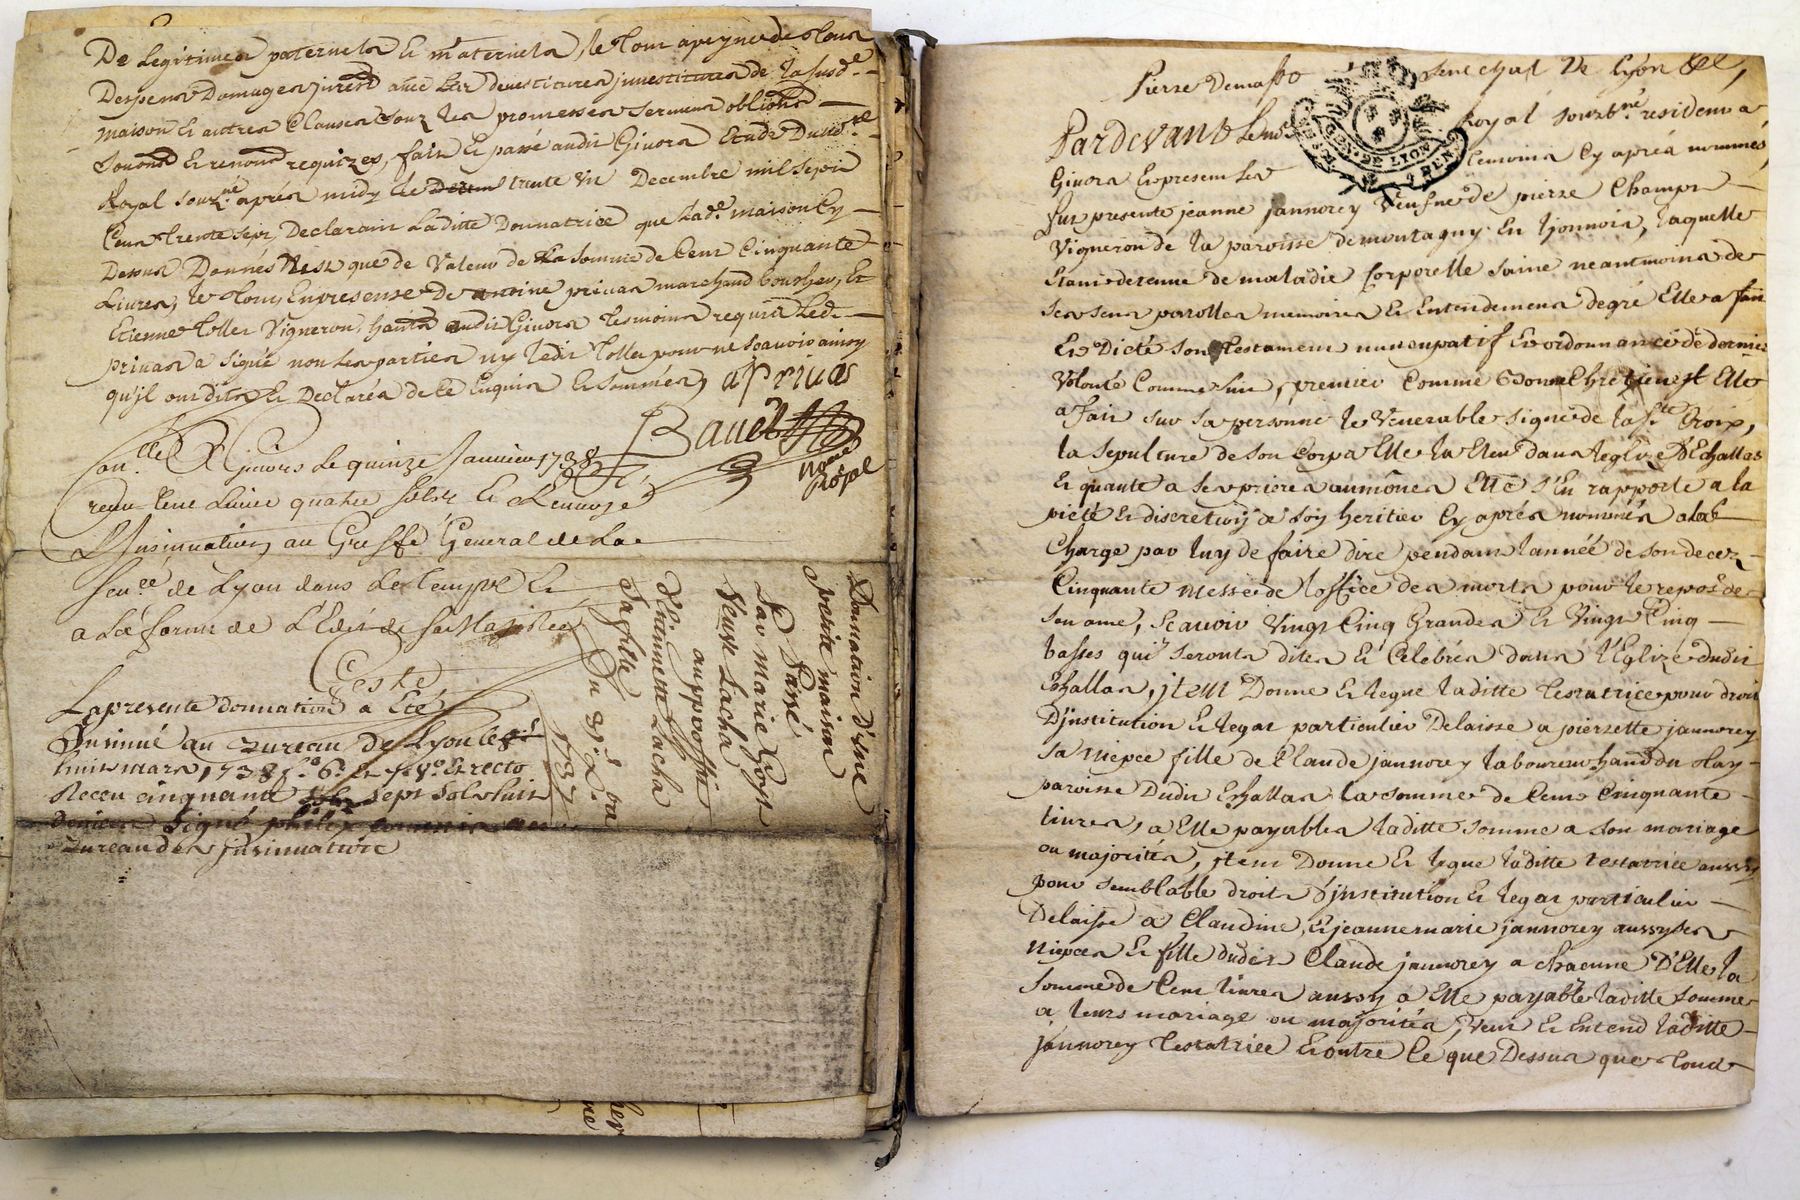 De Legitimes paternels Et maternels, le Tout a peyne de Tous
Despens Domages
maison Et autres Clauses sous les promesses sermens oblions
requizes, fait Et passé audit Givors Etude Dunore
Royal souz.né apres midy le trente un Decembre mil sept
Cent trente sept, Declarant Laditte Donnatrice que lad.e maison Cy
Dessus Donnés N'est que de Valeur de La somme de Cent Cinquante
Livres, le Tout En presense de antoine privas marchand boucher, Et
Etienne Toller Vigneron, audit Givors tesmoins requis Led.
privas a signé non les parties ny ledit Toller pour ne sçavoir ainsy
qu'jl ont dits Et Declarés de Ce Enquis Et sommés, aPrivas
Bauet
Nore
Royal
Con.lle A Givors le quinze Janvier 1738
reçu une Livre quatre sols Et Renvoyé
L'Insinuation au Greffe General de La
Sen.ée de Lyon dans Le temps Et
a La forme de L'Edit de sa Majesté
Ceste
La presente donnation a Eté
Insinué au Bureau de Lyon le
huit mars 1738 f.o 6. Et Recto
Receu cinquante sept sols huit
deniers Signé
Bureau des Insinuations
Donnation d'Une
petite maison
Passé
Par marie Goyst
Veuve Lacha
au proffit
D'Etiennette Lacha
Sa fille
Du 31.e X.bre
1737
Pierre Demasso senechal De Lyon &c,
Pardevant Le no.re Royal souz.né resident a
Givors Et presens Les temoins Cy aprés nommés,
fut presente jeanne jannorey veufve de pierre Champt
Vigneron de la paroisse de montagny En Lyonnois, laquelle
Etant detenue de maladie Corporelle saine neantmoins de
ses sens parolles memoires Et Entendemens de gré Elle a fait
Et Dicté son Testament nuncupatif Et ordonnance de derniere
Volonté Comme suit, premier Comme Bonne Chretienne Elle
a fait sur sa personne le Venerable signe de la S.te Croix,
la sepulture de son Corps Elle la Eleu dans l'eglize D'Echallas
Et quante a ses prieres aumônes Elle s'En rapporte a la
pieté Et discretion de son heritier Cy aprés nommés a la
Charge par luy de faire dire pendant l'année de son decez
Cinquante messe de l'office des morts pour le repos de
son ame, Scavoir Vingt Cinq Grandes Et Vingt Cinq
basses qui seronts dites Et Celebrés dans l'Eglize dudit
Echallas, jtem Donne Et legue laditte testatrice pour droit
D'jnstitution Et legat particulier Delaisse a pierrette jannorey
sa niepce fille de Claude jannorey laboureur hand du Hay
paroisse Dudit Echallas la somme de Cent Cinquante
livres, a Elle payables laditte somme a son mariage
ou majorités, jtem Donne Et legue laditte testatrice aussy
pour semblable droit D'jnstitution Et legat particulier
Delaisse a Claudine, Et jeanne marie jannorey aussy ses
niepces Et fille dudit Claude jannorey a chacune D'Elle la
somme de Cent livres aussy a Elle payable laditte somme
a leurs mariage ou majorités, Veut Et Entend laditte
jannorey testatrice Et outre Ce que Dessus que